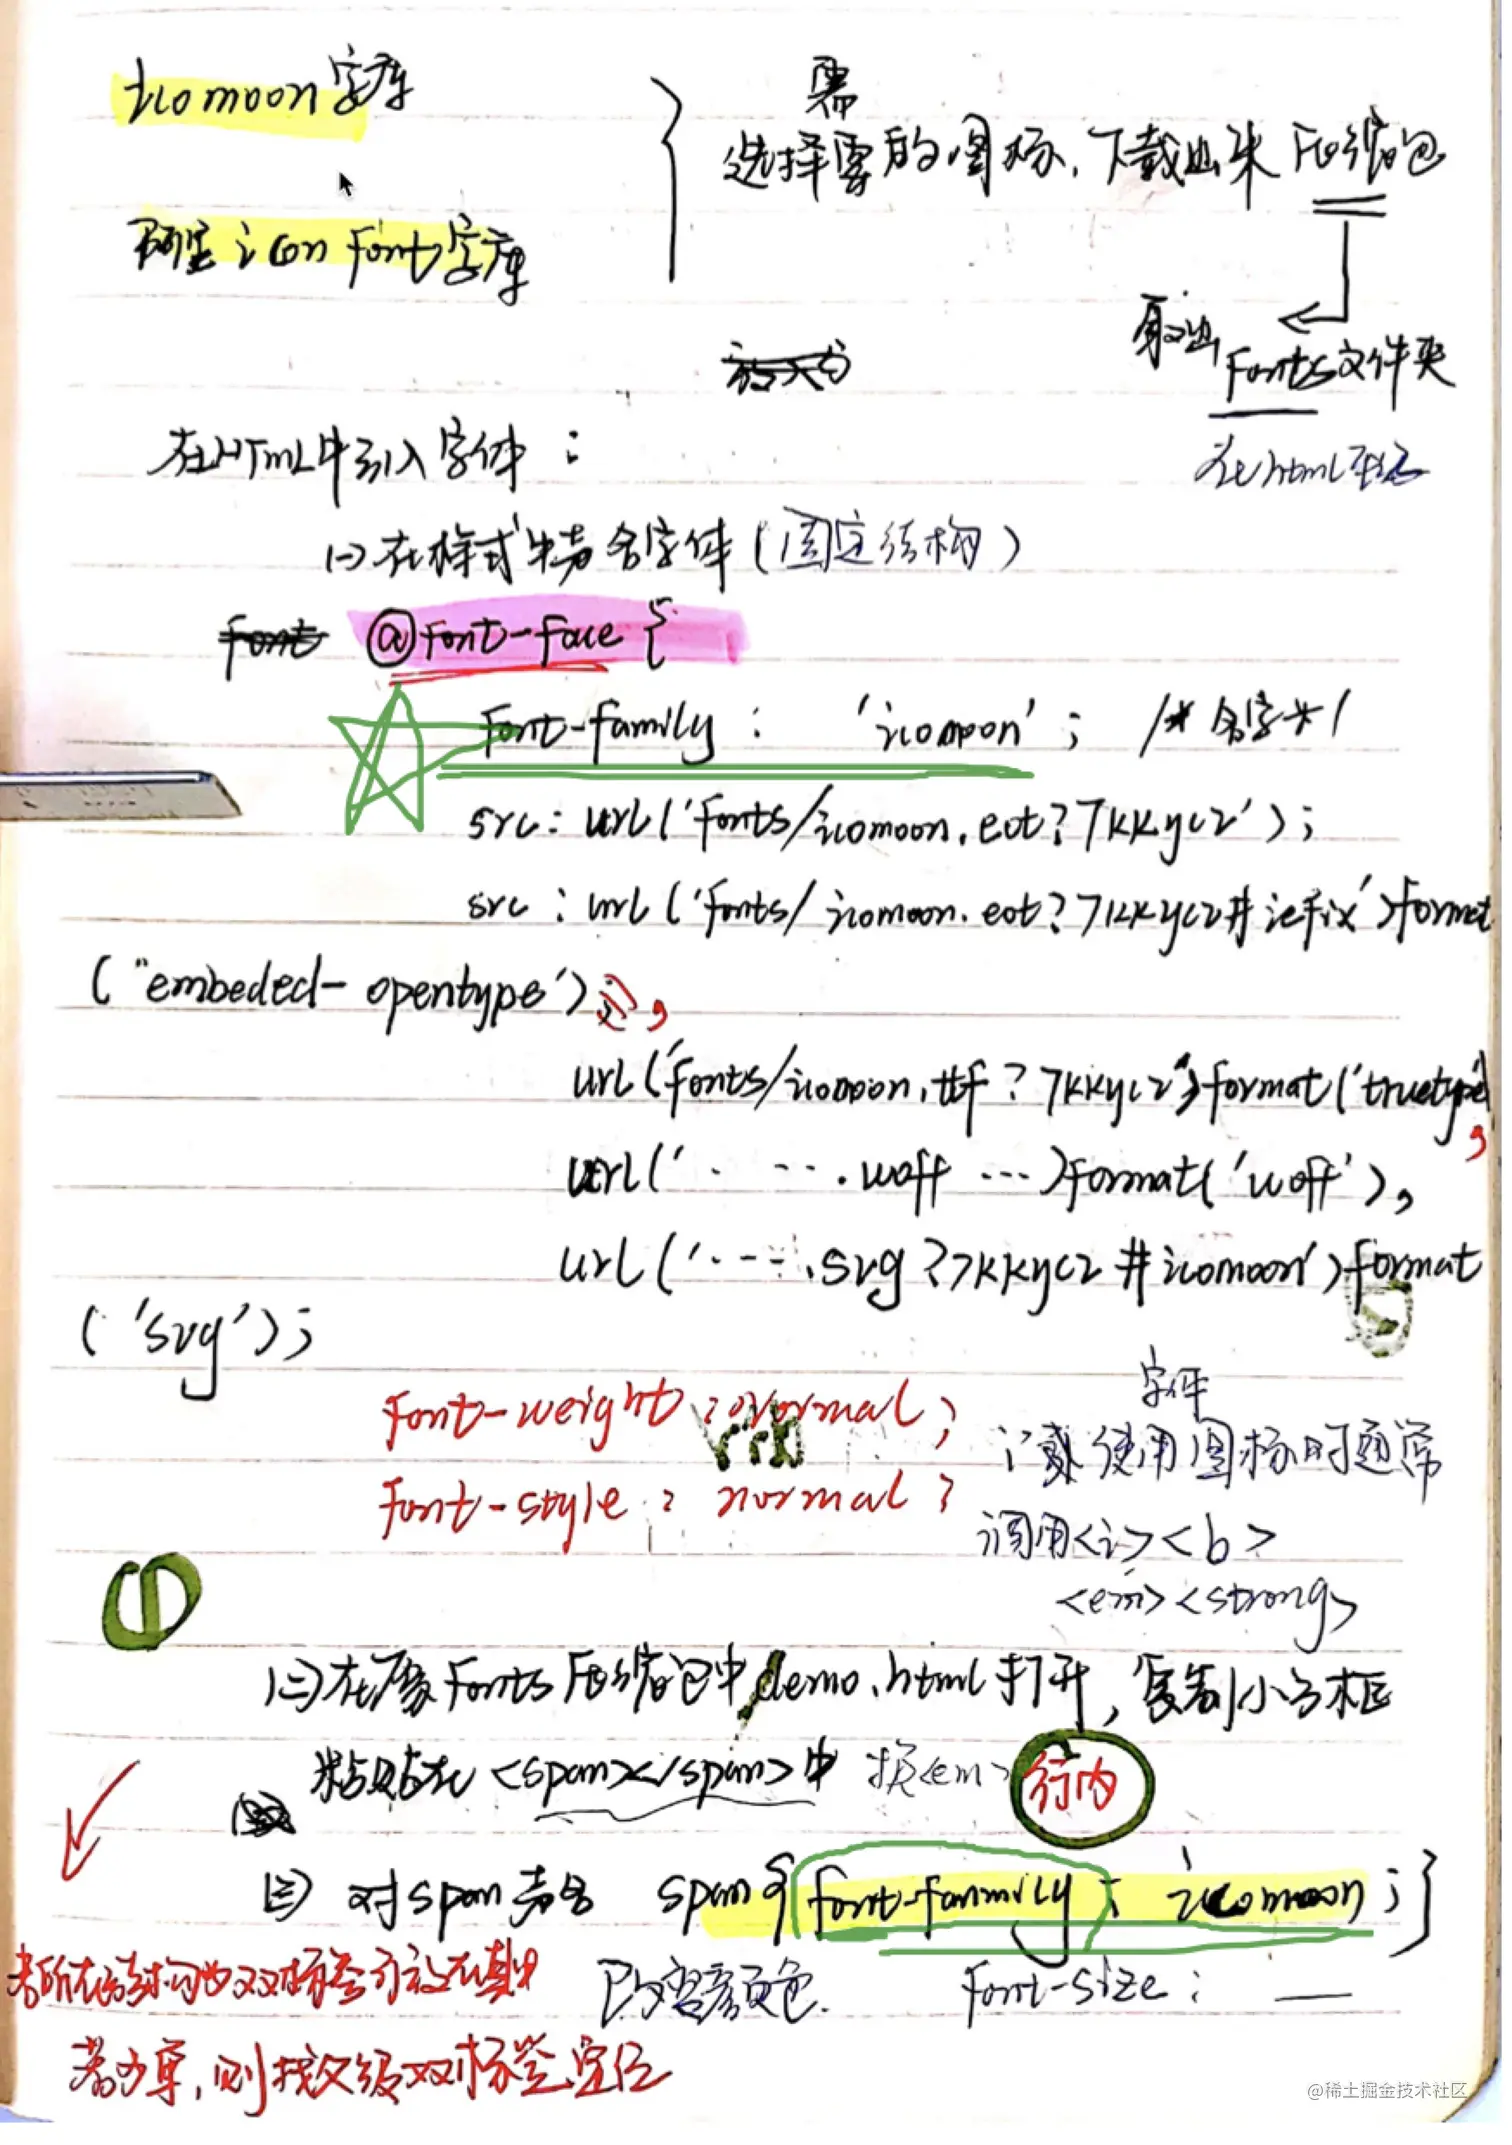 icomoon字库
需
选择要的图标,下载出来压缩包
阿里icon font字库
取出
Fonts文件夹
在HTML中引入字体:
在html
(一)在样式中声名字体(固定结构)
font @font-face {
font-family : 'icomoon' ; /* 名字 */
src: url('fonts/icomoon.eot?7kkyc2');
src : url('fonts/icomoon.eot?7kkyc2#iefix')format
("embeded-opentype') ,
url('fonts/icomoon.ttf?7kkyc2')format('truetype'),
url('· ···.woff ···)format('woff'),
url('···.svg?7kkyc2#icomoon')format
('svg');
font-weight : normal ;
font-style : normal ;
字体
下载 使用图标时通常
调用<i><b>
<em><strong>
①
(二)在原Fonts压缩包中demo.html打开,复制小方框
粘贴在<span></span>中 换<em> 行内
(三)对span声名 span{font-fanmily : icomoon ;}
改变颜色. Font-size : __
若所在结构也双标签可放在其中
若为单,则找父级双标签定位
@稀土掘金技术社区